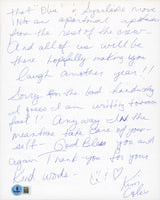 that Blue! & Synclaire move
INto an apartment upstairs
from the rest of the crew -
And all of us will be
there hopfully making you
laugh another year!!
Sorry for the bad handwriting
I guess I am writing too
fast!! Anyway IN the
meantime take care of your-
self - God Bless you and
again Thank you for your
kind words -
Kim
Coles